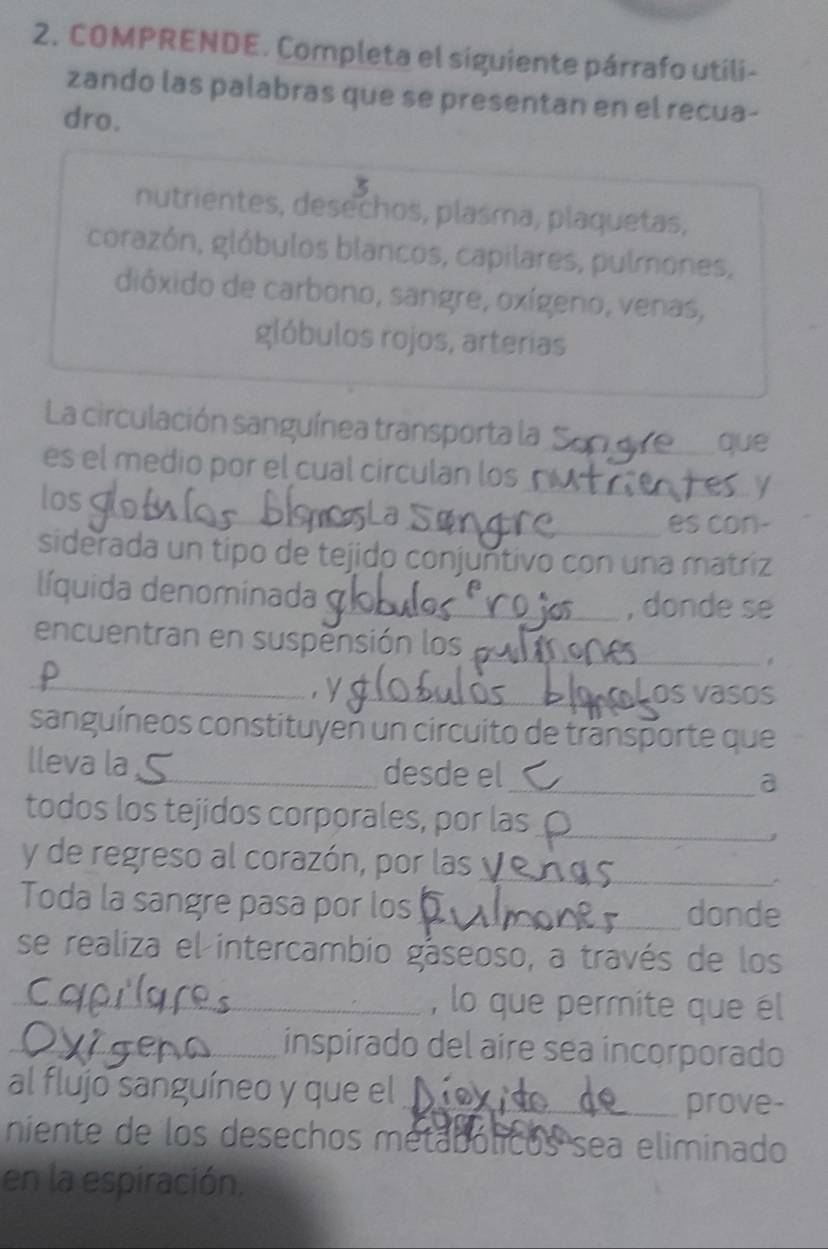 2. COMPRENDE. Completa el siguiente párrafo utili-
zando las palabras que se presentan en el recua-
dro.
3
nutrientes, desechos, plasma, plaquetas,
corazón, glóbulos blancos, capilares, pulmones,
dióxido de carbono, sangre, oxígeno, venas,
glóbulos rojos, arterias
La circulación sanguínea transporta la Sangre que
es el medio por el cual circulan los nutrientes y
los globulos blancos La sangre es con-
siderada un tipo de tejido conjuntivo con una matriz
líquida denominada globulos rojos, donde se
encuentran en suspensión los pulmones,
p, y globulos blancos Los vasos
sanguíneos constituyen un circuito de transporte que
lleva la S desde el C a
todos los tejidos corporales, por las p,
y de regreso al corazón, por las venas.
Toda la sangre pasa por los pulmones donde
se realiza el intercambio gaseoso, a través de los
Capilares, lo que permite que el
Oxigeno inspirado del aire sea incorporado
al flujo sanguíneo y que el Dioxido de carbono prove-
niente de los desechos metabólicos sea eliminado
en la espiración.